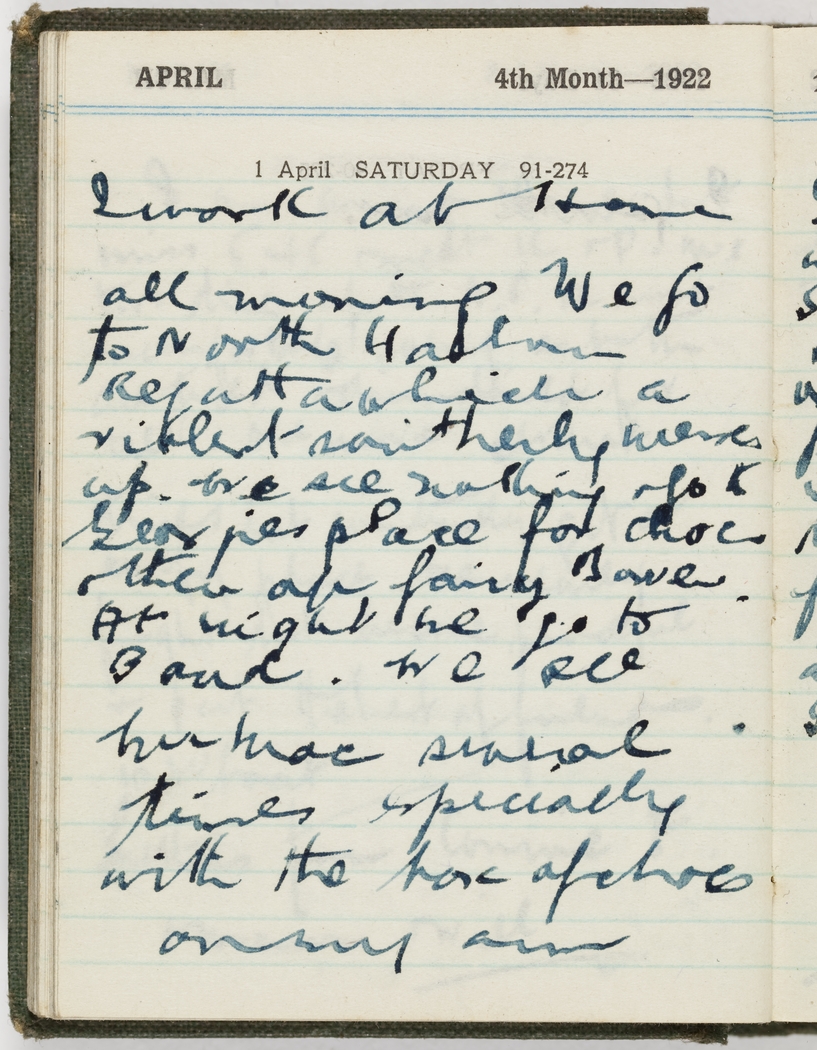 APRIL 4th Month—1922
1 April SATURDAY 91-274
I work at Home
all morning We go
to North Harbour
Regatta which a
violent southerly
up. we see nothing go to
Georgies place for chocs
then up fairy Bower.
At night we go to
Band. we see
several
times especially
with the box of chocs
on my arm